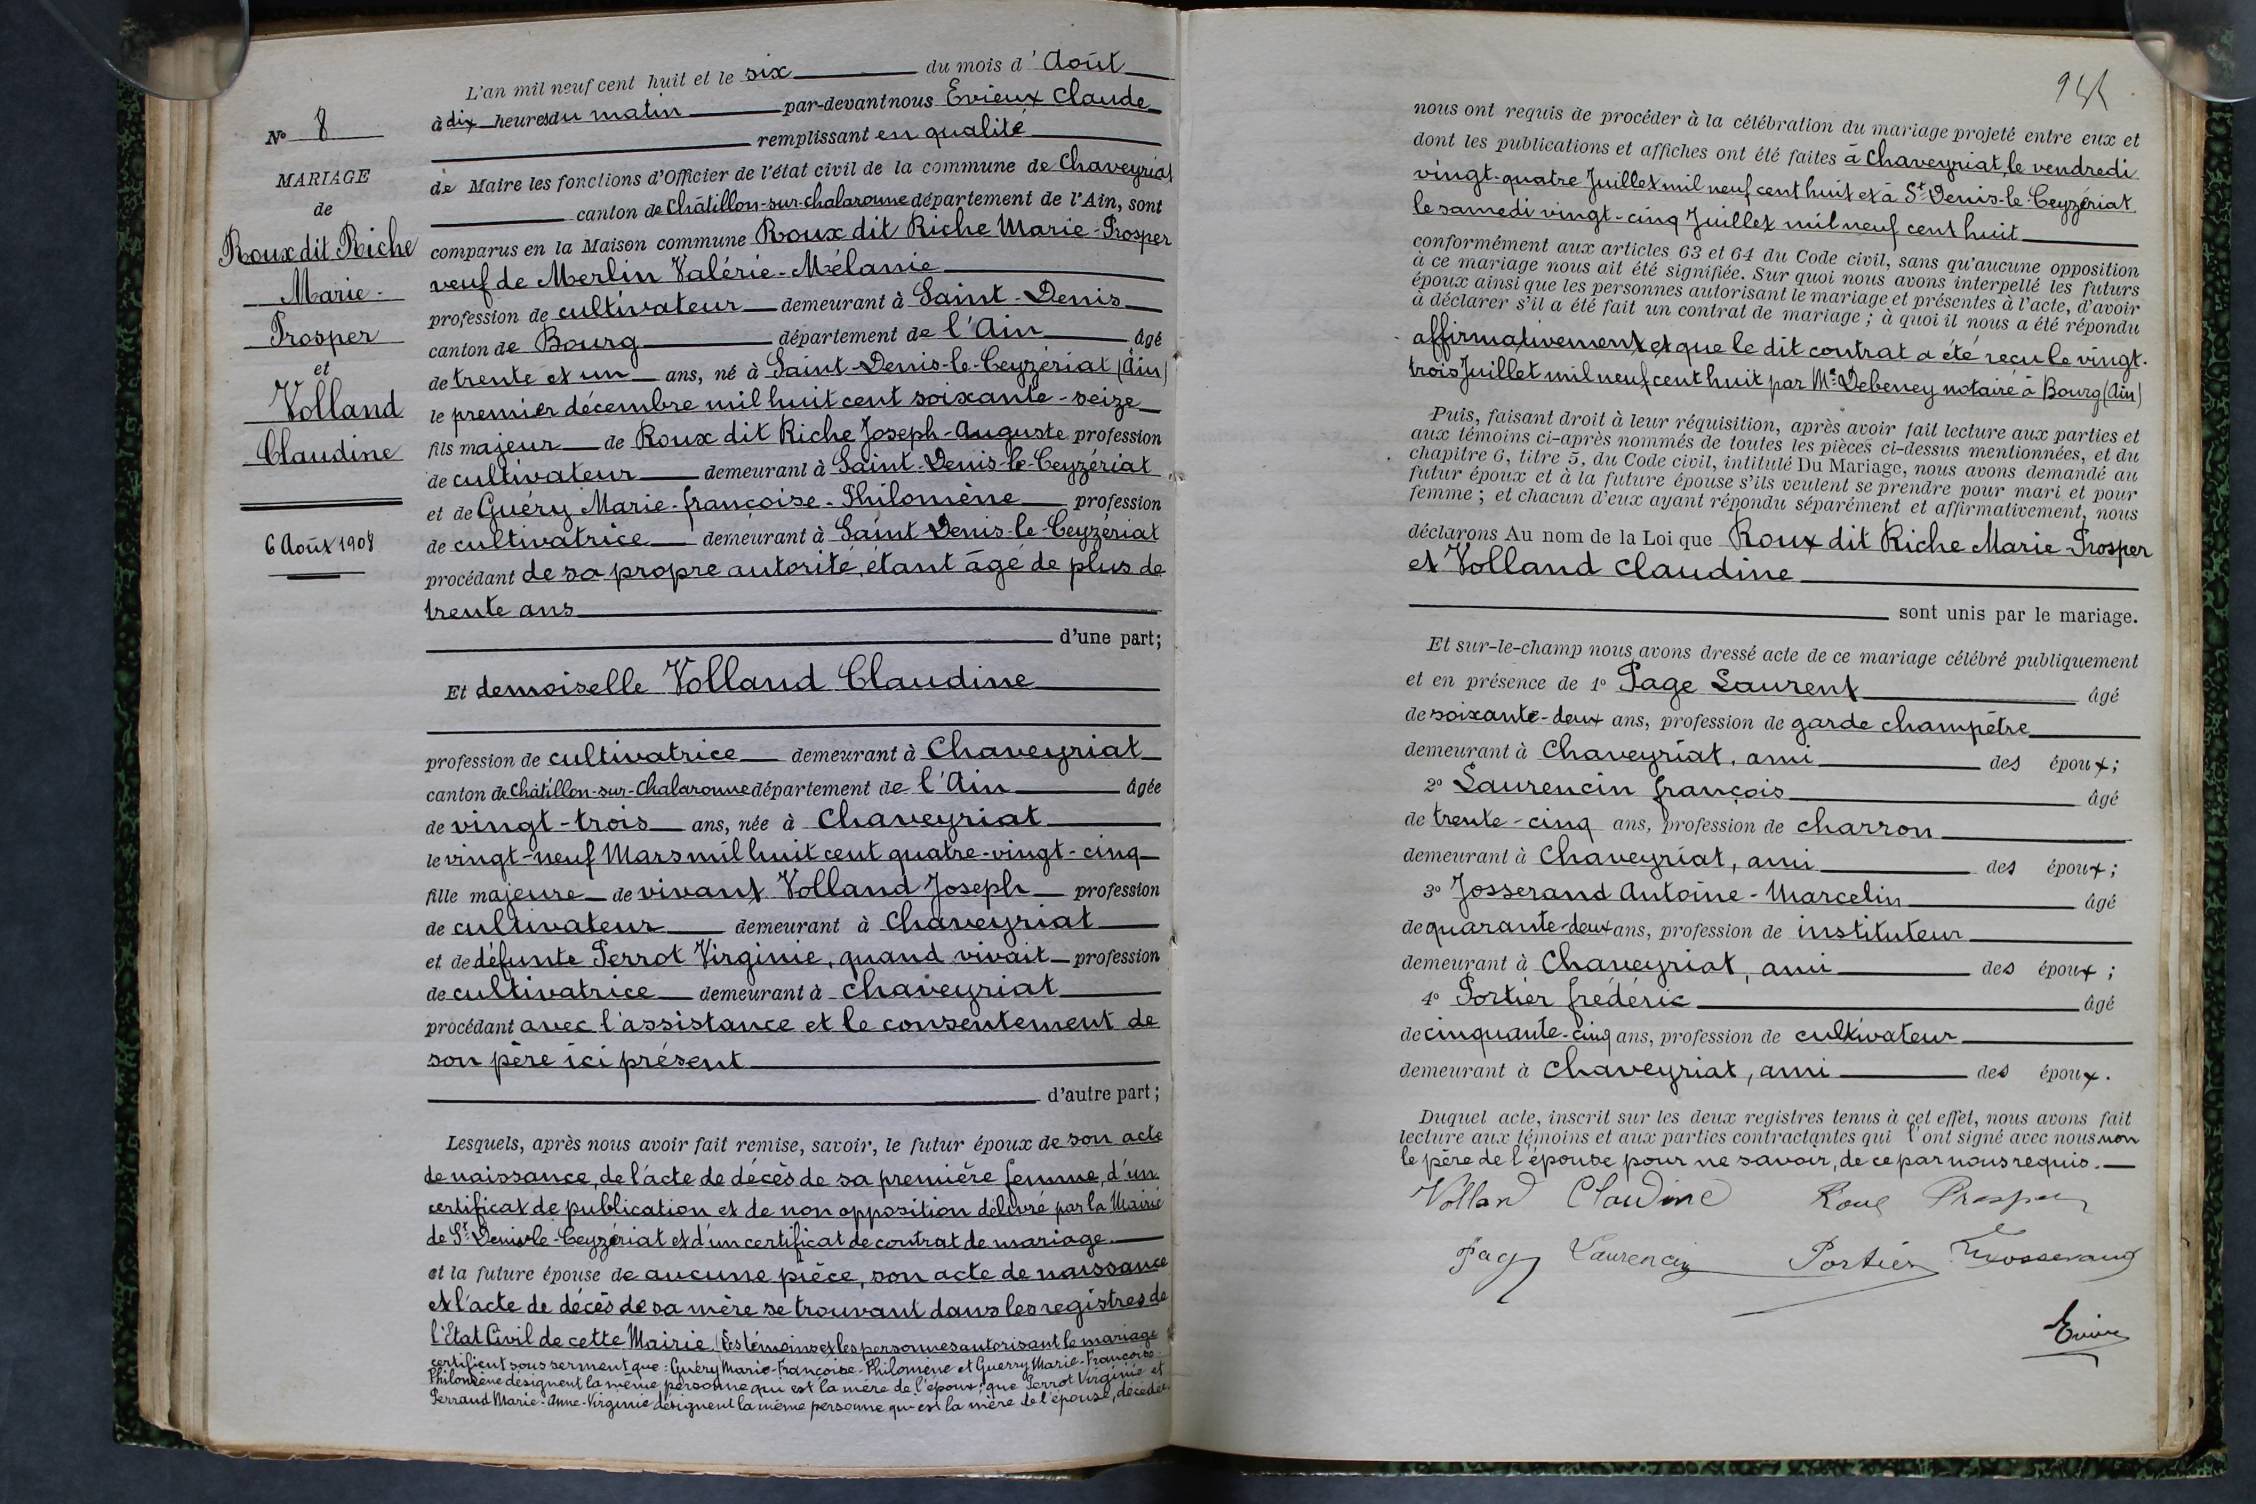 N° 8
MARIAGE
de
Roux dit Riche
Marie-
Prosper
et
Volland
Claudine
6 Août 1908
L'an mil neuf cent huit et le six du mois d'Août
à dix heures du matin par-devant nous Evieux Claude
remplissant en qualité
de Maire les fonctions d'Officier de l'état civil de la commune de Chaveyriat
canton de Châtillon-sur-Chalaronne département de l'Ain, sont
comparus en la Maison commune Roux dit Riche Marie-Prosper
veuf de Merlin Valérie-Mélanie
profession de cultivateur demeurant à Saint-Denis
canton de Bourg département de l'Ain âgé
de trente et un ans, né à Saint-Denis-le-Ceyzériat (Ain)
le premier décembre mil huit cent soixante-seize
fils majeur de Roux dit Riche Joseph-Auguste profession
de cultivateur demeurant à Saint-Denis-le-Ceyzériat
et de Guéry Marie-françoise-Philomène profession
de cultivatrice demeurant à Saint-Denis-le-Ceyzériat
procédant de sa propre autorité, étant âgé de plus de
trente ans
d'une part;
Et demoiselle Volland Claudine
profession de cultivatrice demeurant à Chaveyriat
canton de Châtillon-sur-Chalaronne département de l'Ain âgée
de vingt-trois ans, née à Chaveyriat
le vingt-neuf Mars mil huit cent quatre-vingt-cinq
fille majeure de vivant Volland Joseph profession
de cultivateur demeurant à Chaveyriat
et de défunte Perrot Virginie, quand vivait profession
de cultivatrice demeurant à Chaveyriat
procédant avec l'assistance et le consentement de
son père ici présent
d'autre part;
Lesquels, après nous avoir fait remise, savoir, le futur époux de son acte
de naissance, de l'acte de décès de sa première femme, d'un
certificat de publication et de non opposition délivré par la Mairie
de St Denis-le-Ceyzériat et d'un certificat de contrat de mariage.
et la future épouse de aucune pièce, son acte de naissance
et l'acte de décès de sa mère se trouvant dans les registres de
l'Etat Civil de cette Mairie. Les témoins et les personnes autorisant le mariage
certifient sous serment que : Guéry Marie-Françoise-Philomène et Guerry Marie-Françoise-
Philomène désignent la même personne qui est la mère de l'époux; que Perrot Virginie et
Perraud Marie-Anne-Virginie désignent la même personne qui est la mère de l'épouse, décédée.
nous ont requis de procéder à la célébration du mariage projeté entre eux et
dont les publications et affiches ont été faites à Chaveyriat, le vendredi
vingt-quatre Juillet mil neuf cent huit et à St-Denis-le-Ceyzériat
le samedi vingt-cinq Juillet mil neuf cent huit
conformément aux articles 63 et 64 du Code civil, sans qu'aucune opposition
à ce mariage nous ait été signifiée. Sur quoi nous avons interpellé les futurs
époux ainsi que les personnes autorisant le mariage et présentes à l'acte, d'avoir
à déclarer s'il a été fait un contrat de mariage ; à quoi il nous a été répondu
affirmativement et que le dit contrat a été reçu le vingt-
trois Juillet mil neuf cent huit par Me Debeney notaire à Bourg (Ain)
Puis, faisant droit à leur réquisition, après avoir fait lecture aux parties et
aux témoins ci-après nommés de toutes les pièces ci-dessus mentionnées, et du
chapitre 6, titre 5, du Code civil, intitulé Du Mariage, nous avons demandé au
futur époux et à la future épouse s'ils veulent se prendre pour mari et pour
femme ; et chacun d'eux ayant répondu séparément et affirmativement, nous
déclarons Au nom de la Loi que Roux dit Riche Marie-Prosper
et Volland Claudine
sont unis par le mariage.
Et sur-le-champ nous avons dressé acte de ce mariage célébré publiquement
et en présence de 1° Page Laurent âgé
de soixante-deux ans, profession de garde champêtre
demeurant à Chaveyriat, ami des époux;
2° Laurencin françois âgé
de trente-cinq ans, profession de charron
demeurant à Chaveyriat, ami des époux;
3° Josserand Antoine-Marcelin âgé
de quarante-deux ans, profession de instituteur
demeurant à Chaveyriat, ami des époux;
4° Portier frédéric âgé
de cinquante-cinq ans, profession de cultivateur
demeurant à Chaveyriat, ami des époux.
Duquel acte, inscrit sur les deux registres tenus à cet effet, nous avons fait
lecture aux témoins et aux parties contractantes qui l'ont signé avec nous non
le père de l'épouse pour ne savoir, de ce par nous requis.
Volland Claudine Roux Prosper
Page Laurencin Portier Josserand
Evieux